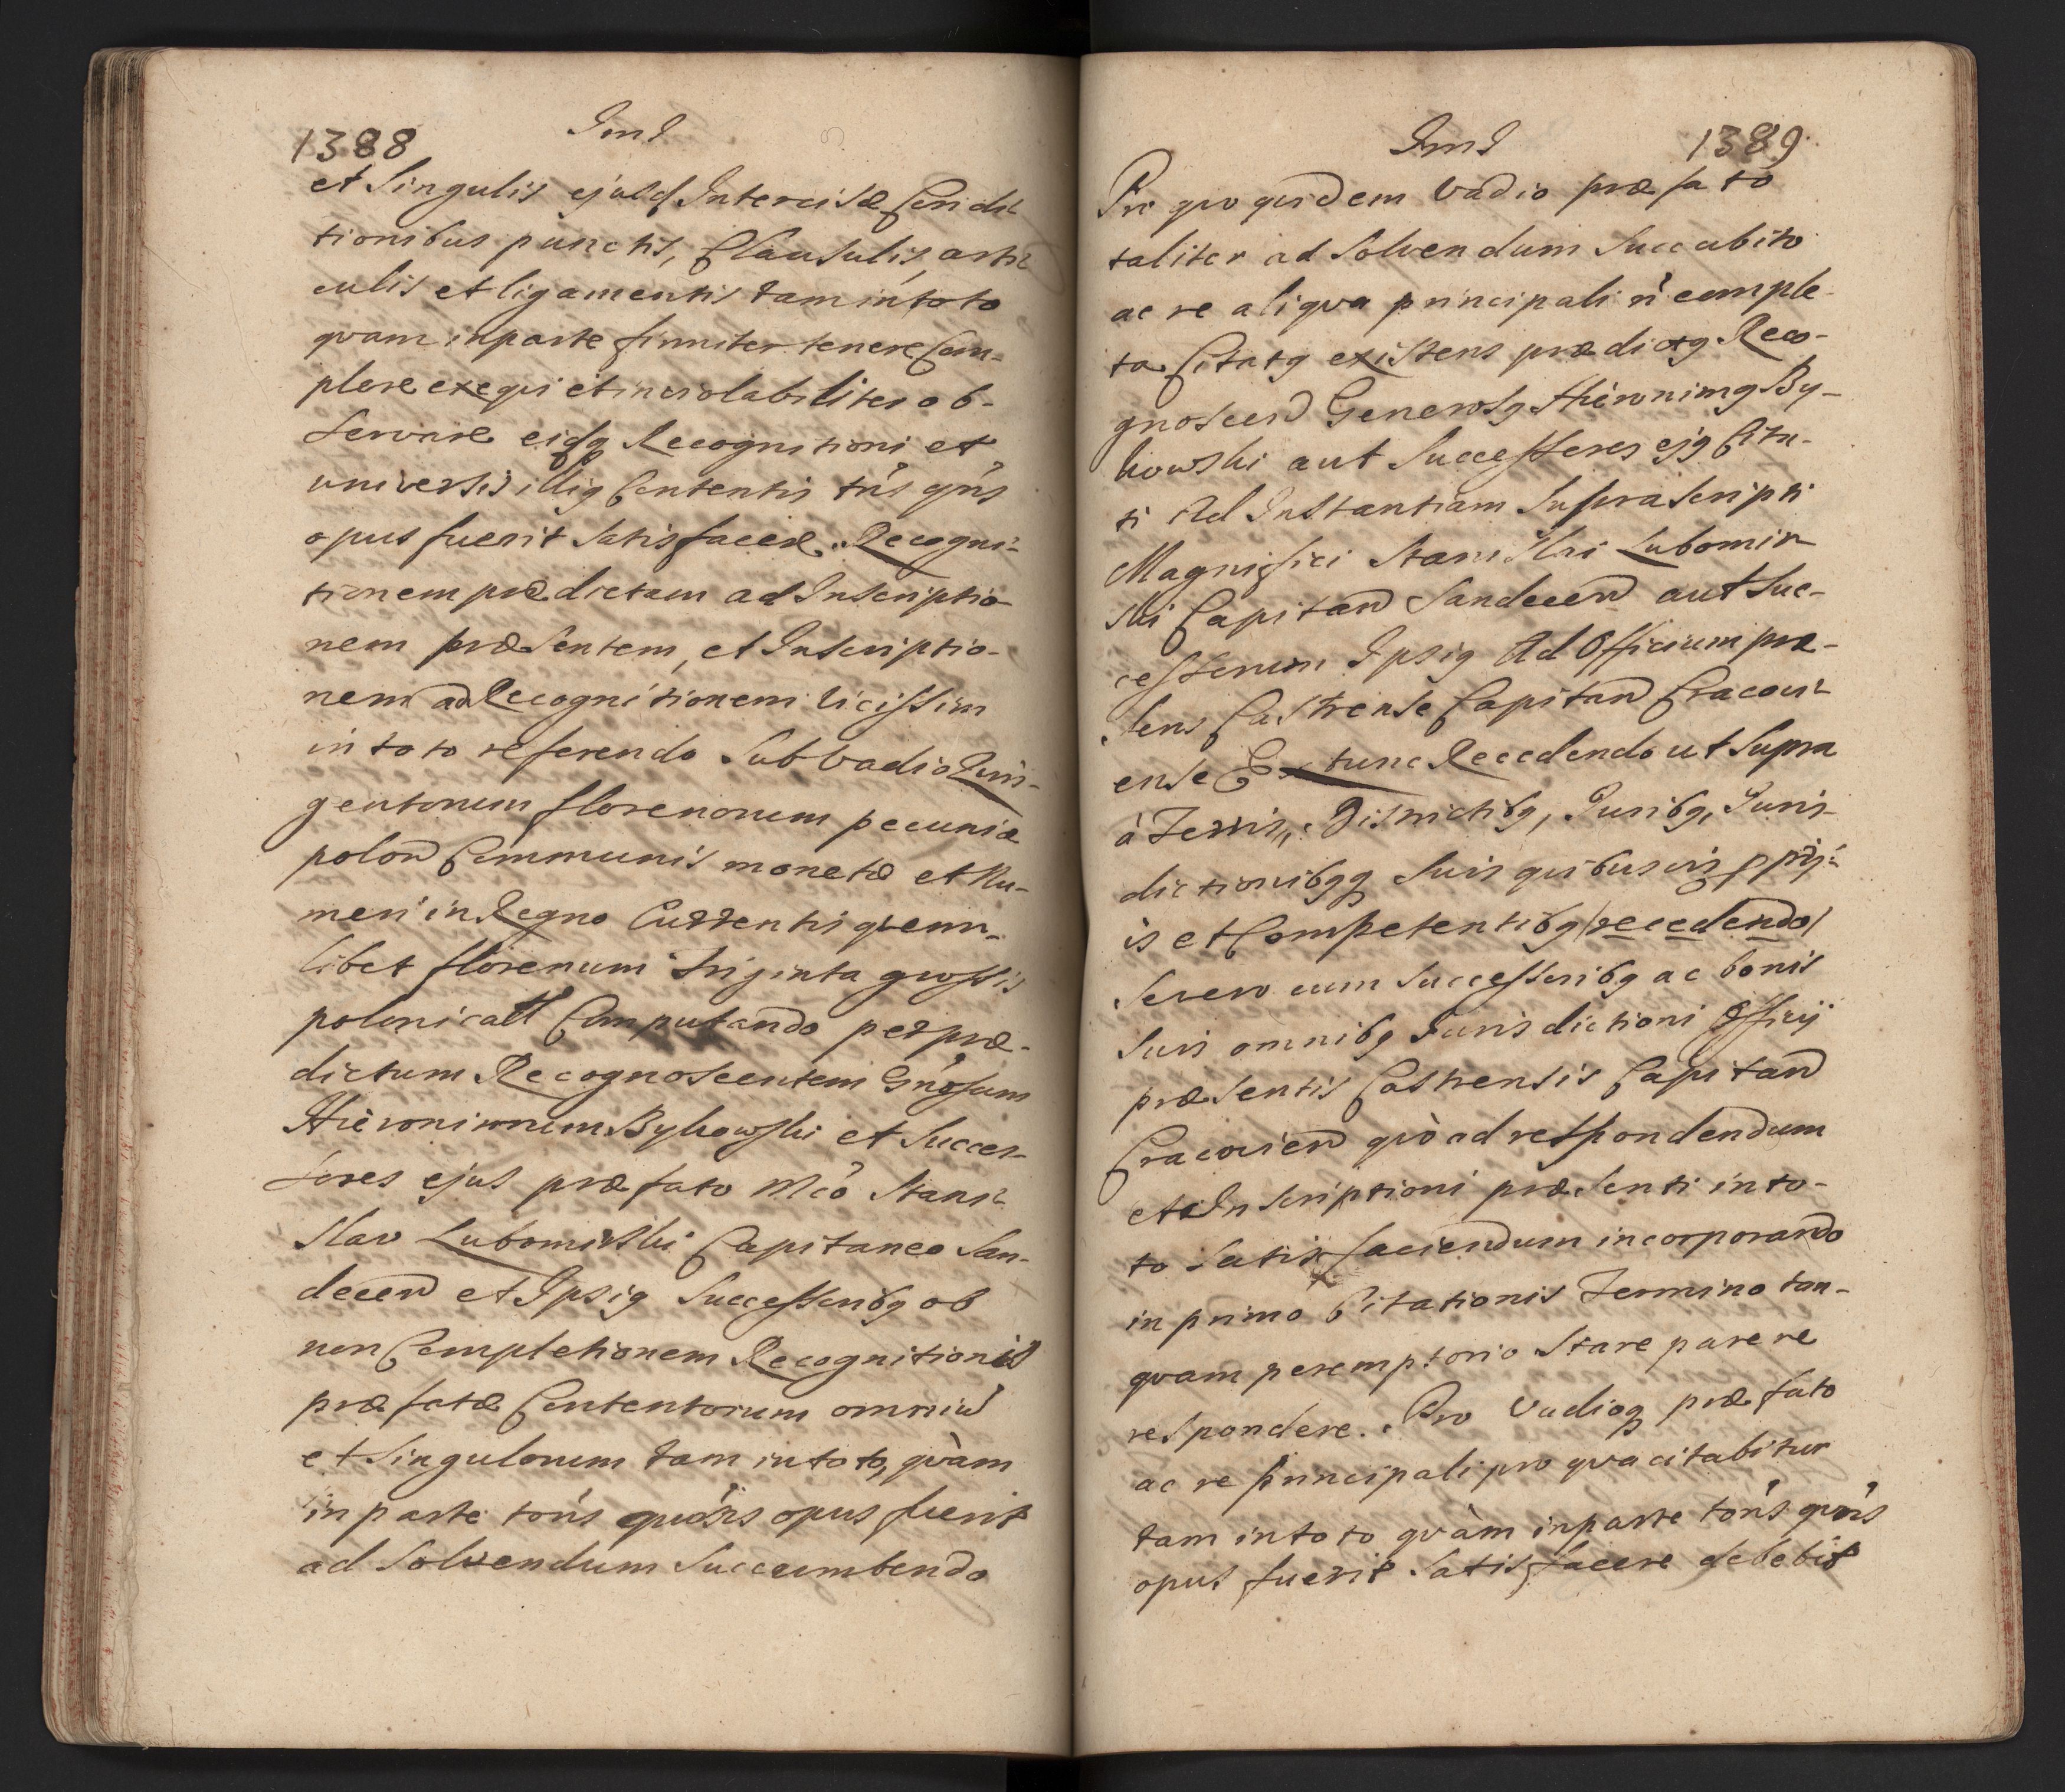 1388
Jnd
et Singulis ejusd Intercisæ Condi-
tionibus punctis, Clausulis, arti-
culis et ligamentis tam in toto
qvam in parte firmiter tenere Com-
plere exeqvi et inviolabiliter ob-
servare eidq Recognitioni et
universis illig Contentis tńs qńs
opus fuerit Satisfacere. Recogni-
tionem prædictam ad Inscriptio-
nem præsentem, et Inscriptio-
nem ad Recognitionem vicissim
in toto referendo Sub vadio Qvin-
gentorum florenorum pecuniæ
polon Communis monetæ et Nu-
meri in Regno Currentis qvem-
libet florenum triginta grossis
polonicall Computando per præ-
dictum Recognoscentem Gńosum
Hieronimum Bykowski et Succes-
sores ejus præfato Mco Stani-
slao Lubomirski Capitaneo San-
decen et Ipsig Successoribg ob
non Completionem Recognitionis
præfatæ Contentorum omniu
et Singulorum tam in toto, qvàm
in parte tońs qvońs opus fuerit
ad Solvendum Succumbendo
Jnd
1389
Pro qvo qvidem Vadio præfato
taliter ad Solvendum Succubito
ac re aliqva principali ń comple-
ta Citatg existens prædictg Reco-
gnoscen Generosg Hieronimg By-
kowski aut Successores ejg Cita-
ti Ad Instantiam Suprascripti
Magnifici Stanislai Lubomir
ski Capitan Sandecen aut Suc-
cessorum Ipsig Ad Officium præ-
sens Castrense Capitan Cracovi-
ense Ex tunc Recedendo ut Supra
à Terris, Districtibg, Juribg, Juris-
dictionibgq Suis qvibusvis pprij-
is et Competentibg /recedendo/
Severo cum Successoribg ac bonis
Suis omnibg Jurisdictioni Officij
præsentis Castrensis Capitan
Cracovien qvò ad respondendum
et Inscriptioni præsenti in to-
to Satisfaciendum incorporando
in primo Citationis Termino tan-
qvam peremptorio Stare parere
respondere. Pro Vadioq præfato
ac re principali pro qva citabitur
tam in toto qvàm in parte tońs qvońs
opus fuerit Satisfacere debebit